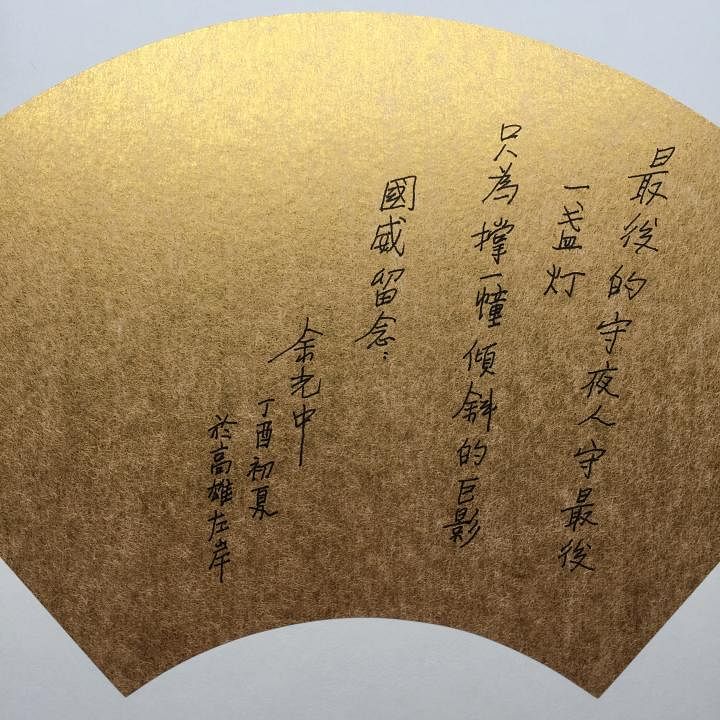 最後的守夜人守最後
一盞灯
只為撐一幢傾斜的巨影
國威留念：
余光中
丁酉初夏
於高雄左岸